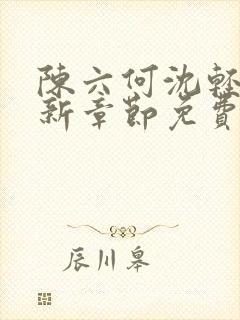 陳六何沈輕
新章節免費
辰川皋